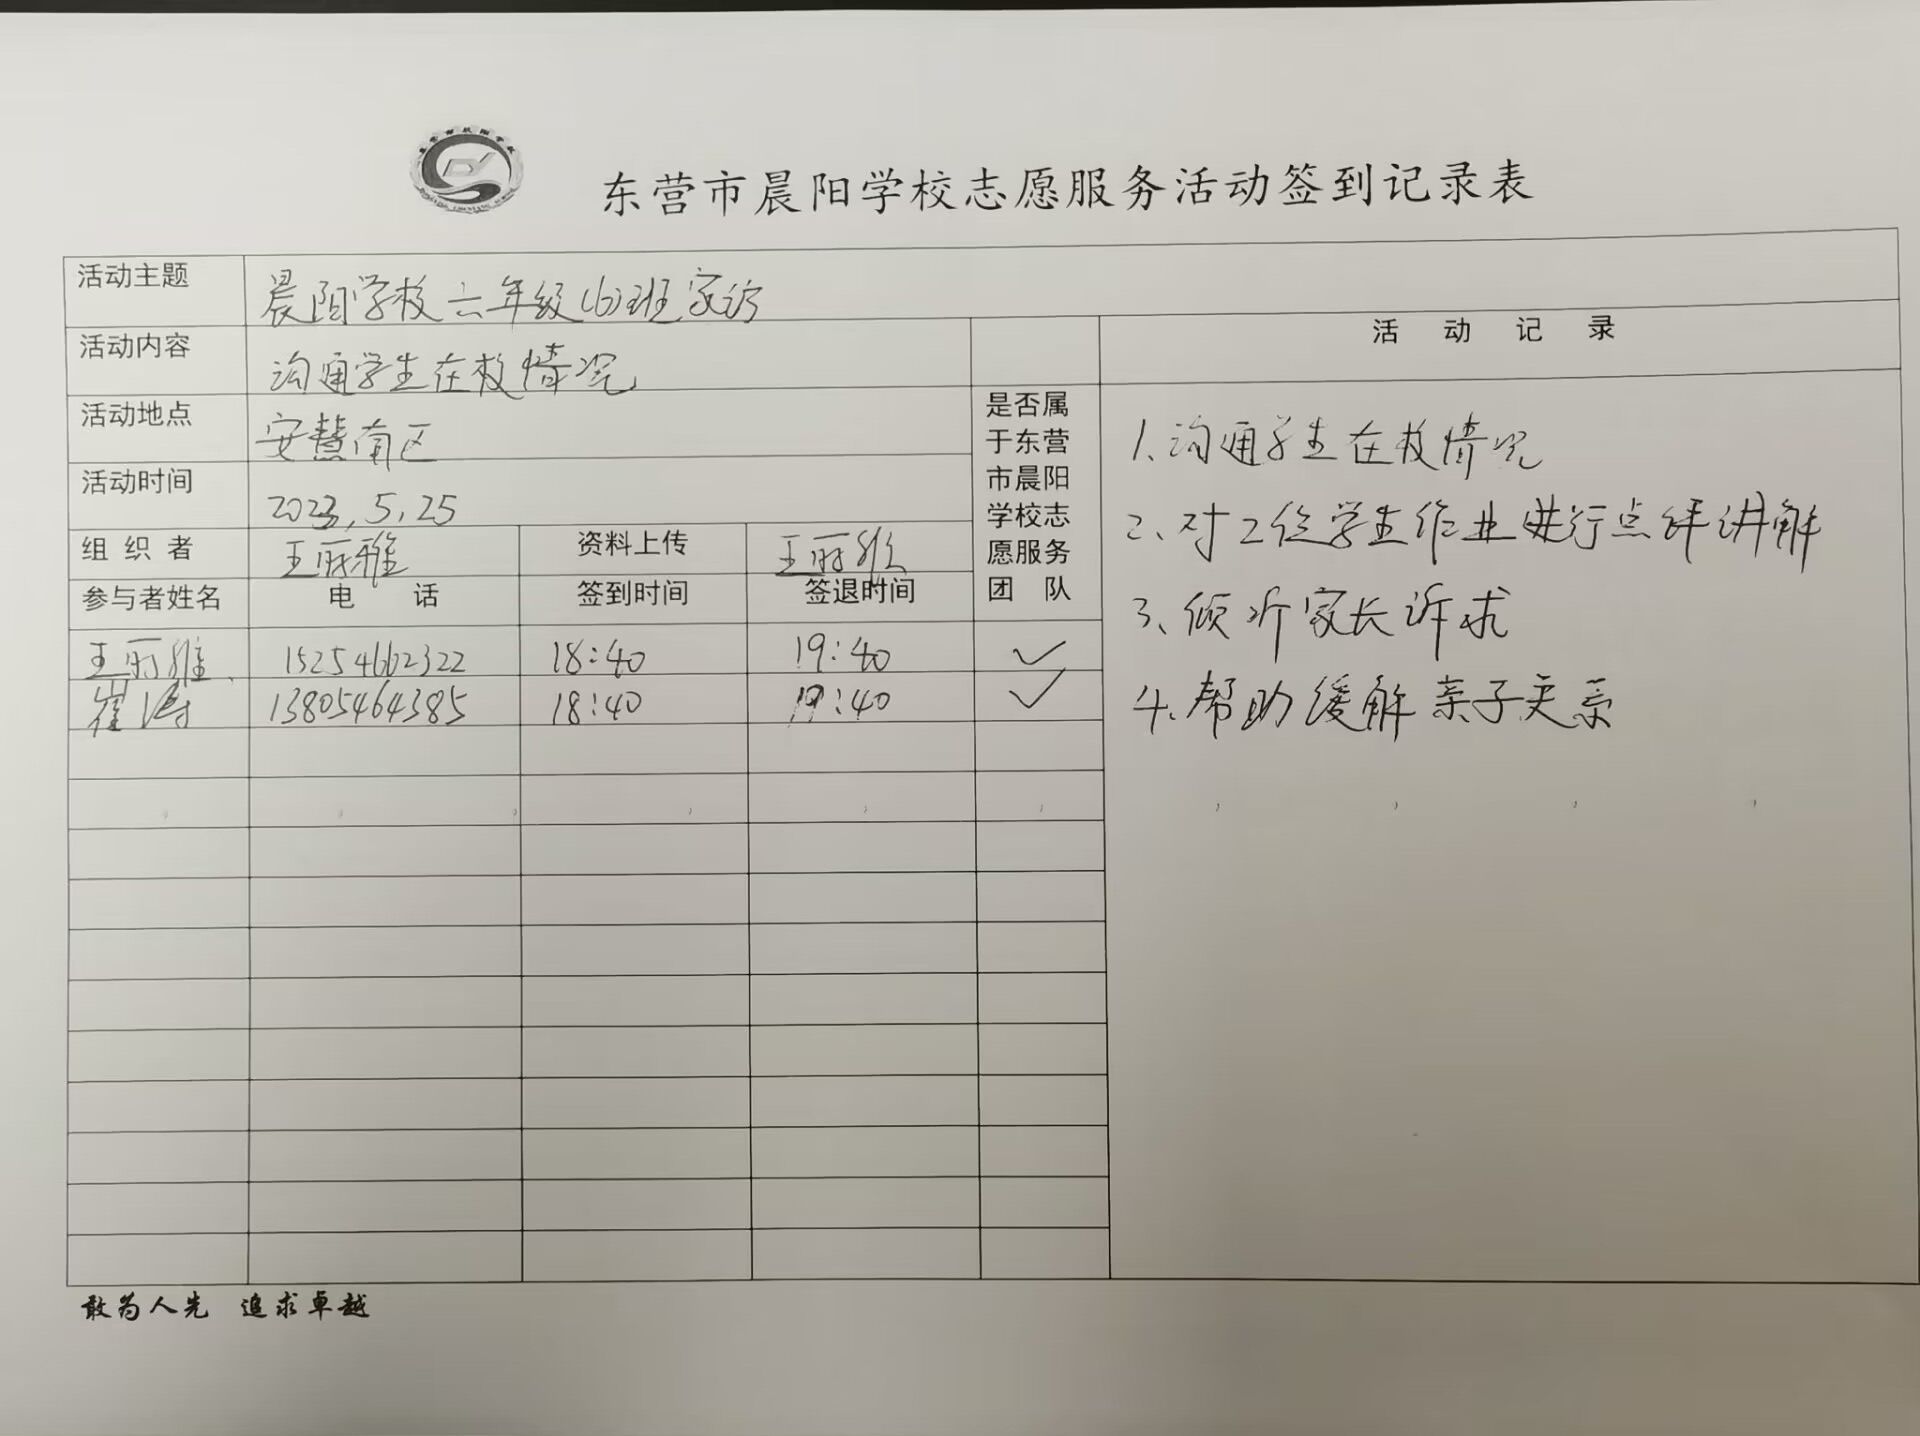 东营市晨阳学校志愿服务活动签到记录表
活动主题 晨阳学校六年级(6)班家访
活动内容 沟通学生在校情况
活动地点 安慧南区
活动时间 2023.5.25
组织者 王丽雅 资料上传 王丽雅
参与者姓名 电话 签到时间 签退时间
是否属
于东营
市晨阳
学校志
愿服务
团队
王丽雅 15254662322 18:40 19:40 ✓
崔涛 13805464385 18:40 19:40 ✓
活动记录
1、沟通学生在校情况
2、对2位学生作业进行点评讲解
3、倾听家长诉求
4、帮助缓解亲子关系
敢为人先 追求卓越